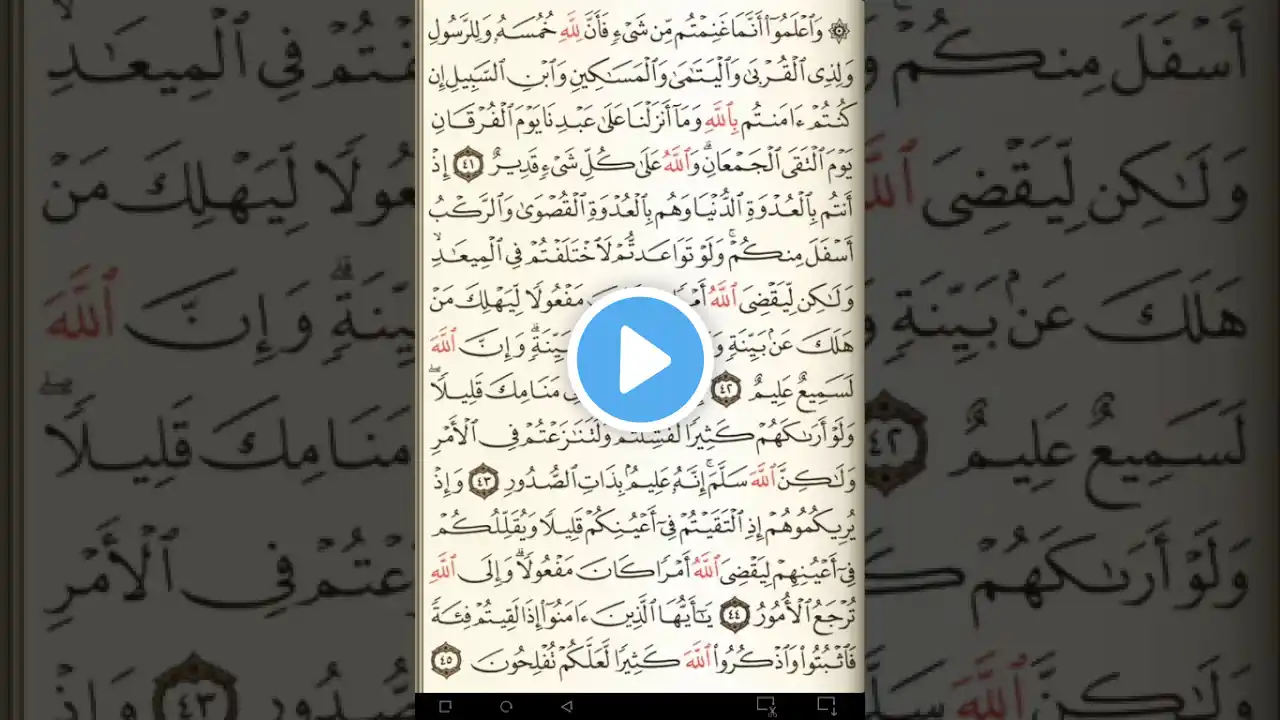 ۞ وَٱعْلَمُوٓا۟ أَنَّمَا غَنِمْتُم مِّن شَىْءٍ فَأَنَّ لِلَّهِ خُمُسَهُۥ وَلِلرَّسُولِ
وَلِذِى ٱلْقُرْبَىٰ وَٱلْيَتَٰمَىٰ وَٱلْمَسَٰكِينِ وَٱبْنِ ٱلسَّبِيلِ إِن
كُنتُمْ ءَامَنتُم بِٱللَّهِ وَمَآ أَنزَلْنَا عَلَىٰ عَبْدِنَا يَوْمَ ٱلْفُرْقَانِ
يَوْمَ ٱلْتَقَى ٱلْجَمْعَانِ ۗ وَٱللَّهُ عَلَىٰ كُلِّ شَىْءٍ قَدِيرٌ ٤١ إِذْ
أَنتُم بِٱلْعُدْوَةِ ٱلدُّنْيَا وَهُم بِٱلْعُدْوَةِ ٱلْقُصْوَىٰ وَٱلرَّكْبُ
أَسْفَلَ مِنكُمْ ۚ وَلَوْ تَوَاعَدتُّمْ لَٱخْتَلَفْتُمْ فِى ٱلْمِيعَٰدِ ۙ
وَلَٰكِن لِّيَقْضِىَ ٱللَّهُ مَفْعُولًا لِّيَهْلِكَ مَنْ
هَلَكَ عَنۢ بَيِّنَةٍ بَيِّنَةٍ ۗ وَإِنَّ ٱللَّهَ
لَسَمِيعٌ عَلِيمٌ ٤٢ مَنَامِكَ قَلِيلًا ۖ
وَلَوْ أَرَىٰكَهُمْ كَثِيرًا لَّفَشِلْتُمْ وَلَتَنَٰزَعْتُمْ فِى ٱلْأَمْرِ
وَلَٰكِنَّ ٱللَّهَ سَلَّمَ ۗ إِنَّهُۥ عَلِيمٌۢ بِذَاتِ ٱلصُّدُورِ ٤٣ وَإِذْ
يُرِيكُمُوهُمْ إِذِ ٱلْتَقَيْتُمْ فِىٓ أَعْيُنِكُمْ قَلِيلًا وَيُقَلِّلُكُمْ
فِىٓ أَعْيُنِهِمْ لِيَقْضِىَ ٱللَّهُ أَمْرًا كَانَ مَفْعُولًا ۗ وَإِلَى ٱللَّهِ
تُرْجَعُ ٱلْأُمُورُ ٤٤ يَٰٓأَيُّهَا ٱلَّذِينَ ءَامَنُوٓا۟ إِذَا لَقِيتُمْ فِئَةً
فَٱثْبُتُوا۟ وَٱذْكُرُوا۟ ٱللَّهَ كَثِيرًا لَّعَلَّكُمْ تُفْلِحُونَ ٤٥